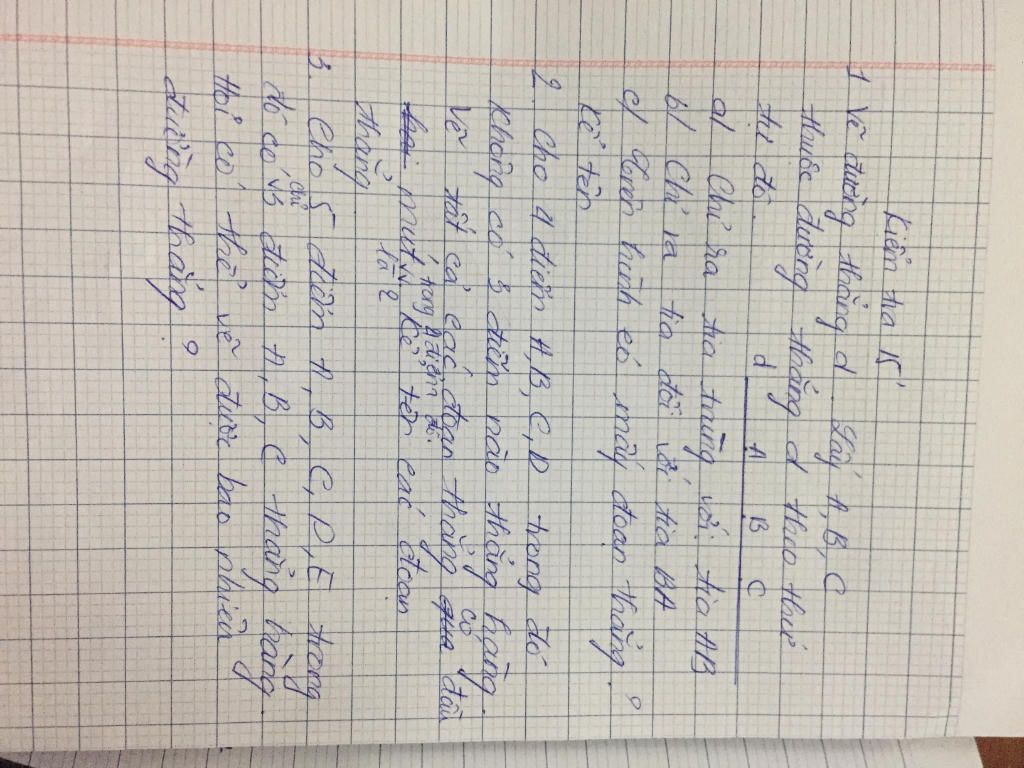 Kiểm tra 15'
1 Vẽ đường thẳng d. Lấy A, B, C
thuộc đường thẳng d theo thứ
tự đó.
d A B C
a) Chỉ ra tia trùng với tia AB
b) Chỉ ra tia đối với tia BA
c) Trên hình có mấy đoạn thẳng?
Kể tên
2. Cho 4 điểm A, B, C, D trong đó
không có 3 điểm nào thẳng hàng.
Vẽ tất cả các đoạn thẳng có đầu
mút là 2 trong 4 điểm đó. Kể tên các đoạn
thẳng
3. Cho 5 điểm A, B, C, D, E trong
đó có chỉ 3 điểm A, B, C thẳng hàng.
Hỏi có thể vẽ được bao nhiêu
đường thẳng?